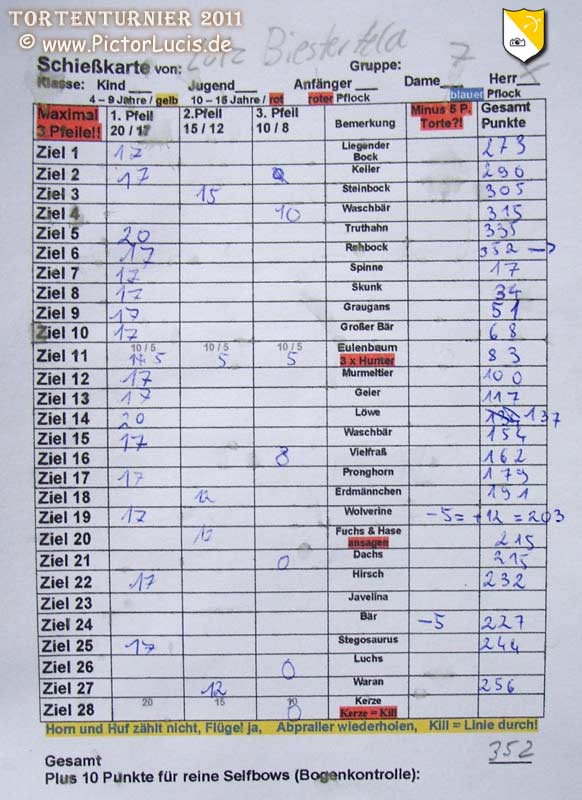 TORTENTURNIER 2011
© www.PictorLucis.de
Schießkarte von: Lutz Biesterfeld Gruppe: 7
Klasse: Kind___ Jugend___ Anfänger ___ Dame___ Herr X
4 – 9 Jahre / gelb 10 – 16 Jahre / rot roter Pflock blauer Pflock
Maximal 3 Pfeile!! 1. Pfeil 20 / 17 2.Pfeil 15 / 12 3. Pfeil 10 / 8 Bemerkung Minus 5 P. Torte?! Gesamt Punkte
Ziel 1 17 Liegender Bock 273
Ziel 2 17 Keiler 290
Ziel 3 15 Steinbock 305
Ziel 4 10 Waschbär 315
Ziel 5 20 Truthahn 335
Ziel 6 17 Rehbock 352 →
Ziel 7 17 Spinne 17
Ziel 8 17 Skunk 34
Ziel 9 17 Graugans 51
Ziel 10 17 Großer Bär 68
Ziel 11 10 / 5 5 10 / 5 5 10 / 5 5 Eulenbaum 3 x Hunter 83
Ziel 12 17 Murmeltier 100
Ziel 13 17 Geier 117
Ziel 14 20 Löwe 137
Ziel 15 17 Waschbär 154
Ziel 16 8 Vielfraß 162
Ziel 17 17 Pronghorn 179
Ziel 18 12 Erdmännchen 191
Ziel 19 17 Wolverine -5 = +12 = 203
Ziel 20 12 Fuchs & Hase ansagen 215
Ziel 21 0 Dachs 215
Ziel 22 17 Hirsch 232
Ziel 23 Javelina
Ziel 24 Bär -5 227
Ziel 25 17 Stegosaurus 244
Ziel 26 0 Luchs
Ziel 27 12 Waran 256
Ziel 28 20 15 10 Kerze Kerze = Kill
Horn und Huf zählt nicht, Flügel ja, Abpraller wiederholen, Kill = Linie durch!
Gesamt 352
Plus 10 Punkte für reine Selfbows (Bogenkontrolle):